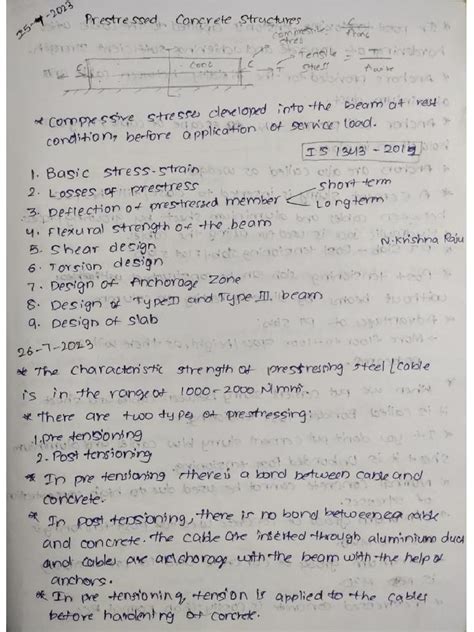 25-7-2023
Prestressed Concrete Structures
compressive
stress
C conc C Tensile
stress
* compressive stresses developed into the beam at rest
condition, before application of service load.
IS 1343 - 2012
1. Basic stress-strain
2. Losses of prestress
3. Deflection of prestressed member short term
Long term
4. Flexural strength of the beam
5. Shear design
N. Krishna Raju
6. Torsion design
7. Design of Anchorage Zone
8. Design of Type II and Type III beam
9. Design of slab
26-7-2023
* The characteristic strength of prestressing steel/cable
is in the range of 1000-2000 N/mm².
* There are two types of prestressing:
1. Pre tensioning
2. Post tensioning
* In pre tensioning there is a bond between cable and
concrete.
* In post tensioning, there is no bond between cable
and concrete. The cable are inserted through aluminium duct
and cables are anchorage with the beam with the help of
anchors.
* In pre tensioning, tension is applied to the cables
before hardening of concrete.